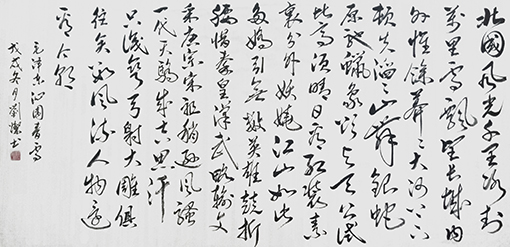 北國風光千里冰封
萬里雪飄望長城內
外惟餘莽々大河上下
頓失滔々山舞銀蛇
原馳蠟象欲与天公試
比高須晴日看紅裝素
裹分外妖嬈江山如此
多嬌引無數英雄競折
腰惜秦皇漢武略輸文
采唐宗宋祖稍遜風騷
一代天驕成吉思汗
只識彎弓射大雕俱
往矣數風流人物還
看今朝
毛澤東沁園春雪
戊戌冬月劉